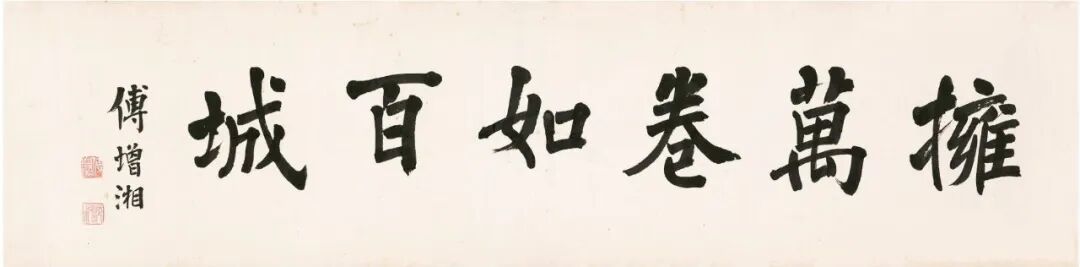 擁萬卷如百城
傅增湘